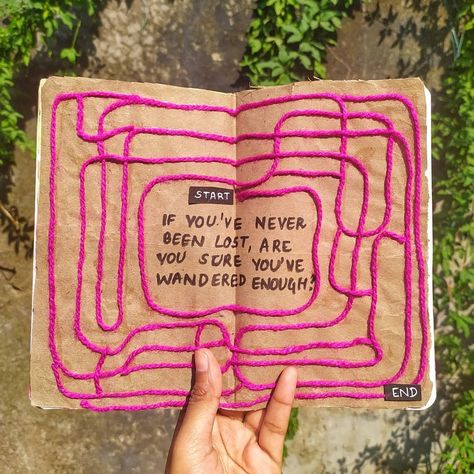 START
IF YOU'VE NEVER
BEEN LOST, ARE
YOU SURE YOU'VE
WANDERED ENOUGH?
END